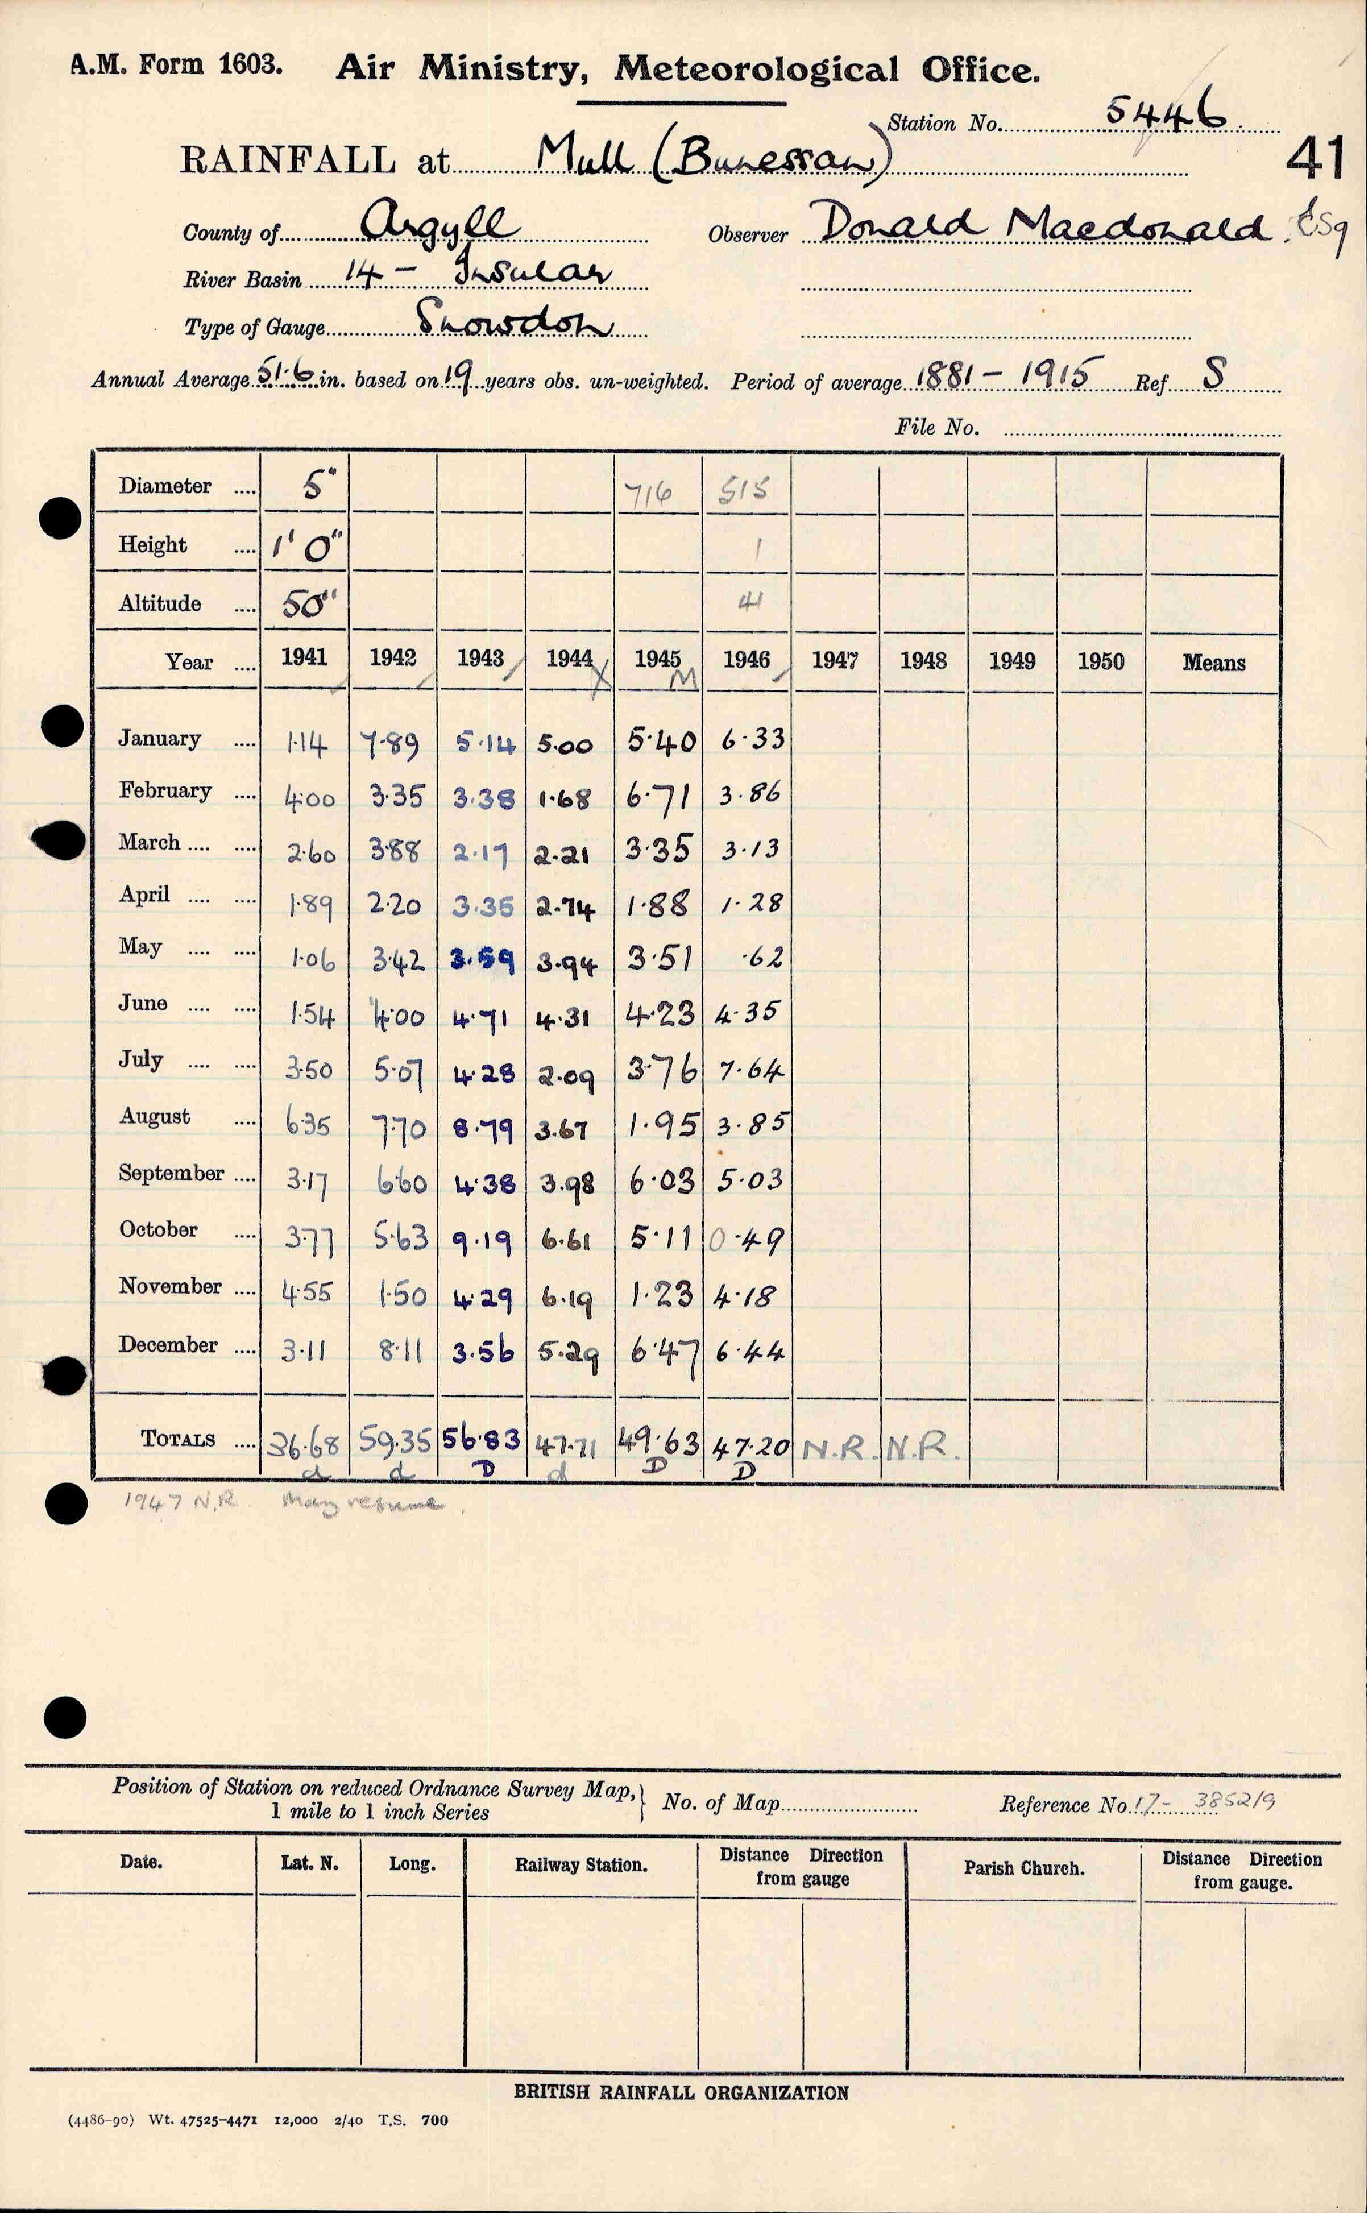 A.M. Form 1603. Air Ministry, Meteorological Office.
Station No. 5446
RAINFALL at Mull (Bunessan) 41
County of Argyll Observer Donald Macdonald. Esq
River Basin 14 - Insular
Type of Gauge Snowdon
Annual Average 51.6 in. based on 19 years obs. un-weighted. Period of average 1881 - 1915 Ref S
File No.
Diameter .... 5" 716 515
Height .... 1' 0" 1
Altitude .... 50" 41
Year .... 1941 1942 1943 1944 1945 1946 1947 1948 1949 1950 Means
X M
January .... 1.14 7.89 5.14 5.00 5.40 6.33
February .... 4.00 3.35 3.38 1.68 6.71 3.86
March .... .... 2.60 3.88 2.17 2.21 3.35 3.13
April .... .... 1.89 2.20 3.35 2.74 1.88 1.28
May .... .... 1.06 3.42 3.59 3.94 3.51 .62
June .... .... 1.54 4.00 4.71 4.31 4.23 4.35
July .... .... 3.50 5.07 4.28 2.09 3.76 7.64
August .... 6.35 7.70 8.79 3.67 1.95 3.85
September .... 3.17 6.60 4.38 3.98 6.03 5.03
October .... 3.77 5.63 9.19 6.61 5.11 0.49
November .... 4.55 1.50 4.29 6.19 1.23 4.18
December .... 3.11 8.11 3.56 5.29 6.47 6.44
TOTALS .... 36.68 59.35 56.83 47.71 49.63 47.20 N.R. N.R.
d d D d D D
1947 N.R. May resume.
Position of Station on reduced Ordnance Survey Map, } No. of Map Reference No. 17- 3852/9
1 mile to 1 inch Series
Date. Lat. N. Long. Railway Station. Distance Direction from gauge Parish Church. Distance Direction from gauge.
BRITISH RAINFALL ORGANIZATION
(4486-90) Wt. 47525-4471 12,000 2/40 T.S. 700